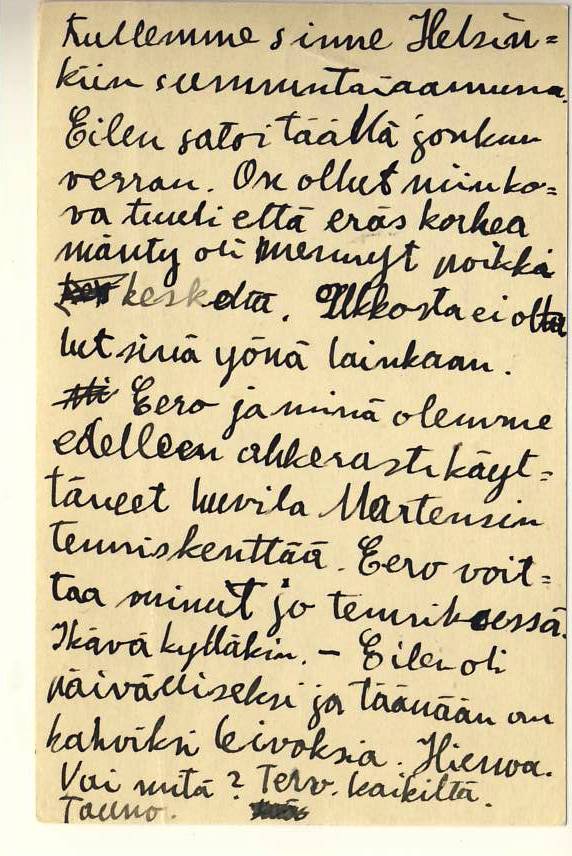 Tullemme sinne Helsin=
kiin sunnuntaiaamuna.
Eilen satoi täällä jonkun
verran. On ollut niin ko=
va tuuli että eräs korkea
mänty oli mennyt poikki
keskeltä. Ukkosta ei ollu
lut sinä yönä lainkaan.
Eero ja minä olemme
edelleen ahkerasti käyt=
täneet huvila Martensin
tenniskenttää. Eero voit=
taa minut jo tenniksessä.
Ikävä kylläkin. – Eilen oli
päivälliseksi ja tänään on
kahviksi leivoksia. Hienoa.
Vai mitä? Terv. kaikilta.
Tauno.